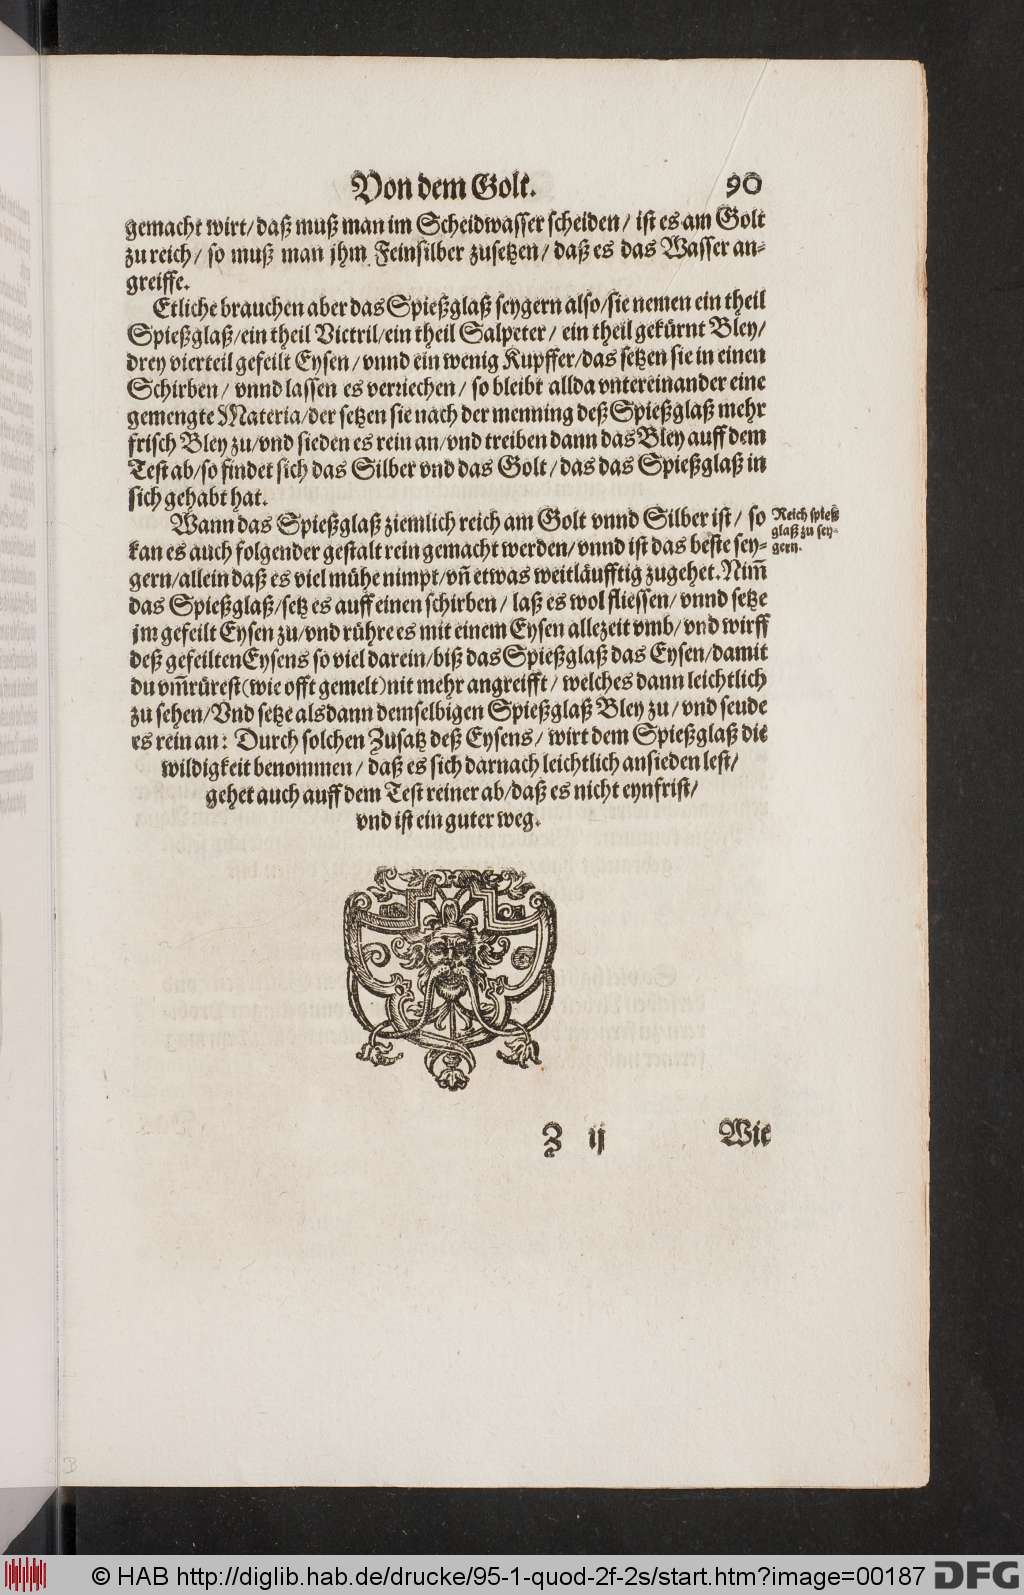 Von dem Golt. 90
gemacht wirt/ daß muß man im Scheidwasser scheiden/ ist es am Golt
zu reich/ so muß man jhm Feinsilber zusetzen/ daß es das Wasser an-
greiffe.
Etliche brauchen aber das Spießglaß seygern also/ sie nemen ein theil
Spießglaß/ ein theil Victril/ ein theil Salpeter/ ein theil gekürnt Bley/
drey vierteil gefeilt Eysen/ vnnd ein wenig Kupffer/ das setzen sie in einen
Schirben/ vnnd lassen es verriechen/ so bleibt allda vntereinander eine
gemengte Materia/ der setzen sie nach der menning deß Spießglaß mehr
frisch Bley zu/ vnd sieden es rein an/ vnd treiben dann das Bley auff dem
Test ab/ so findet sich das Silber vnd das Golt/ das das Spießglaß in
sich gehabt hat.
Wann das Spießglaß ziemlich reich am Golt vnnd Silber ist/ so
kan es auch folgender gestalt rein gemacht werden/ vnnd ist das beste sey-
gern/ allein daß es viel mühe nimpt/ vñ etwas weitläufftig zugehet. Nim̃
das Spießglaß/ setz es auff einen schirben/ laß es wol fliessen/ vnnd setze
jm gefeilt Eysen zu/ vnd rühre es mit einem Eysen allezeit vmb/ vnd wirff
deß gefeilten Eysens so viel darein/ biß das Spießglaß das Eysen/ damit
du vm̃rürest (wie offt gemelt) nit mehr angreifft/ welches dann leichtlich
zu sehen/ Vnd setze als dann demselbigen Spießglaß Bley zu/ vnd seude
es rein an: Durch solchen Zusatz deß Eysens/ wirt dem Spießglaß die
wildigkeit benommen/ daß es sich darnach leichtlich ansieden lest/
gehet auch auff dem Test reiner ab/ daß es nicht eynfrist/
vnd ist ein guter weg.
Reich spieß
glaß zu sey-
gern.
Z ij Wie
© HAB http://diglib.hab.de/drucke/95-1-quod-2f-2s/start.htm?image=00187 DFG